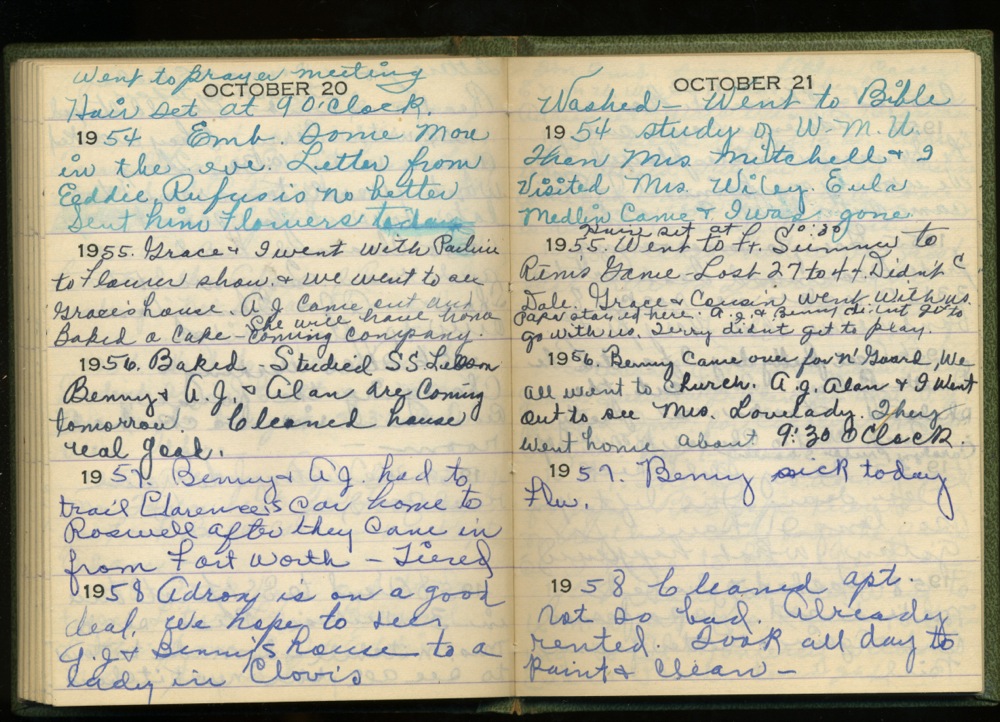 Went to prayer meeting
OCTOBER 20
Hair set at 9 O'Clock.
1954 Emb. Some more
in the eve. Letter from
Eddie, Rufus is no better
Sent him flowers today
1955. Grace & I went with Pauline
to flower show. & we went to see
Grace's house. A.J. Came out and
She will have home
Baked a Cake - Coming Company.
1956. Baked - Studied S S Lesson
Benny & A.J. & Alan are Coming
tomorrow. Cleaned house
real good.
1957. Benny & A.J. had to
trail Clarence's Car home to
Roswell after they Came in
from Fort Worth - Tiered
1958 Adron is on a good
deal. We hope to sell
A.J. & Benny's house to a
lady in Clovis
OCTOBER 21
Washed - Went to Bible
1954 study of W. M. U.
Then Mrs. Mitchell & I
Visited Mrs. Wiley. Eula
Medlin Came & I was gone.
Hair set at 10:30
1955. Went to Ft. Sumner to
Rem's Game - Lost 27 to 44. Didn't C
Dale. Grace & Cousin went with us.
Papa stayed here. A.J. & Benny didn't go to
go with us. Terry didn't get to play.
1956. Benny Came over for N' Guard, We
all went to Church. A.J. Alan & I Went
out to see Mrs. Lovelady. They
went home about 9:30 O'Clock.
1957. Benny sick today
Flu.
1958 Cleaned apt.
not so bad. Already
rented. Took all day to
paint & clean -